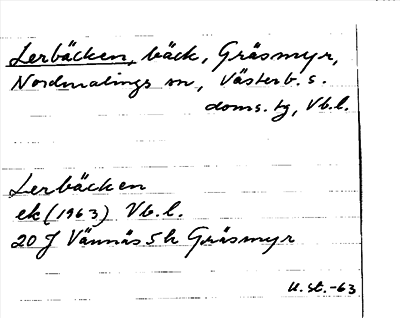 Lerbäcken, bäck, Gräsmyr,
Nordmalings sn, Västerb. s.
doms. tg, Vb.l.
Lerbäcken
ek (1963) Vb.l.
20 J Vännäs 5 h Gräsmyr
U.st.-63